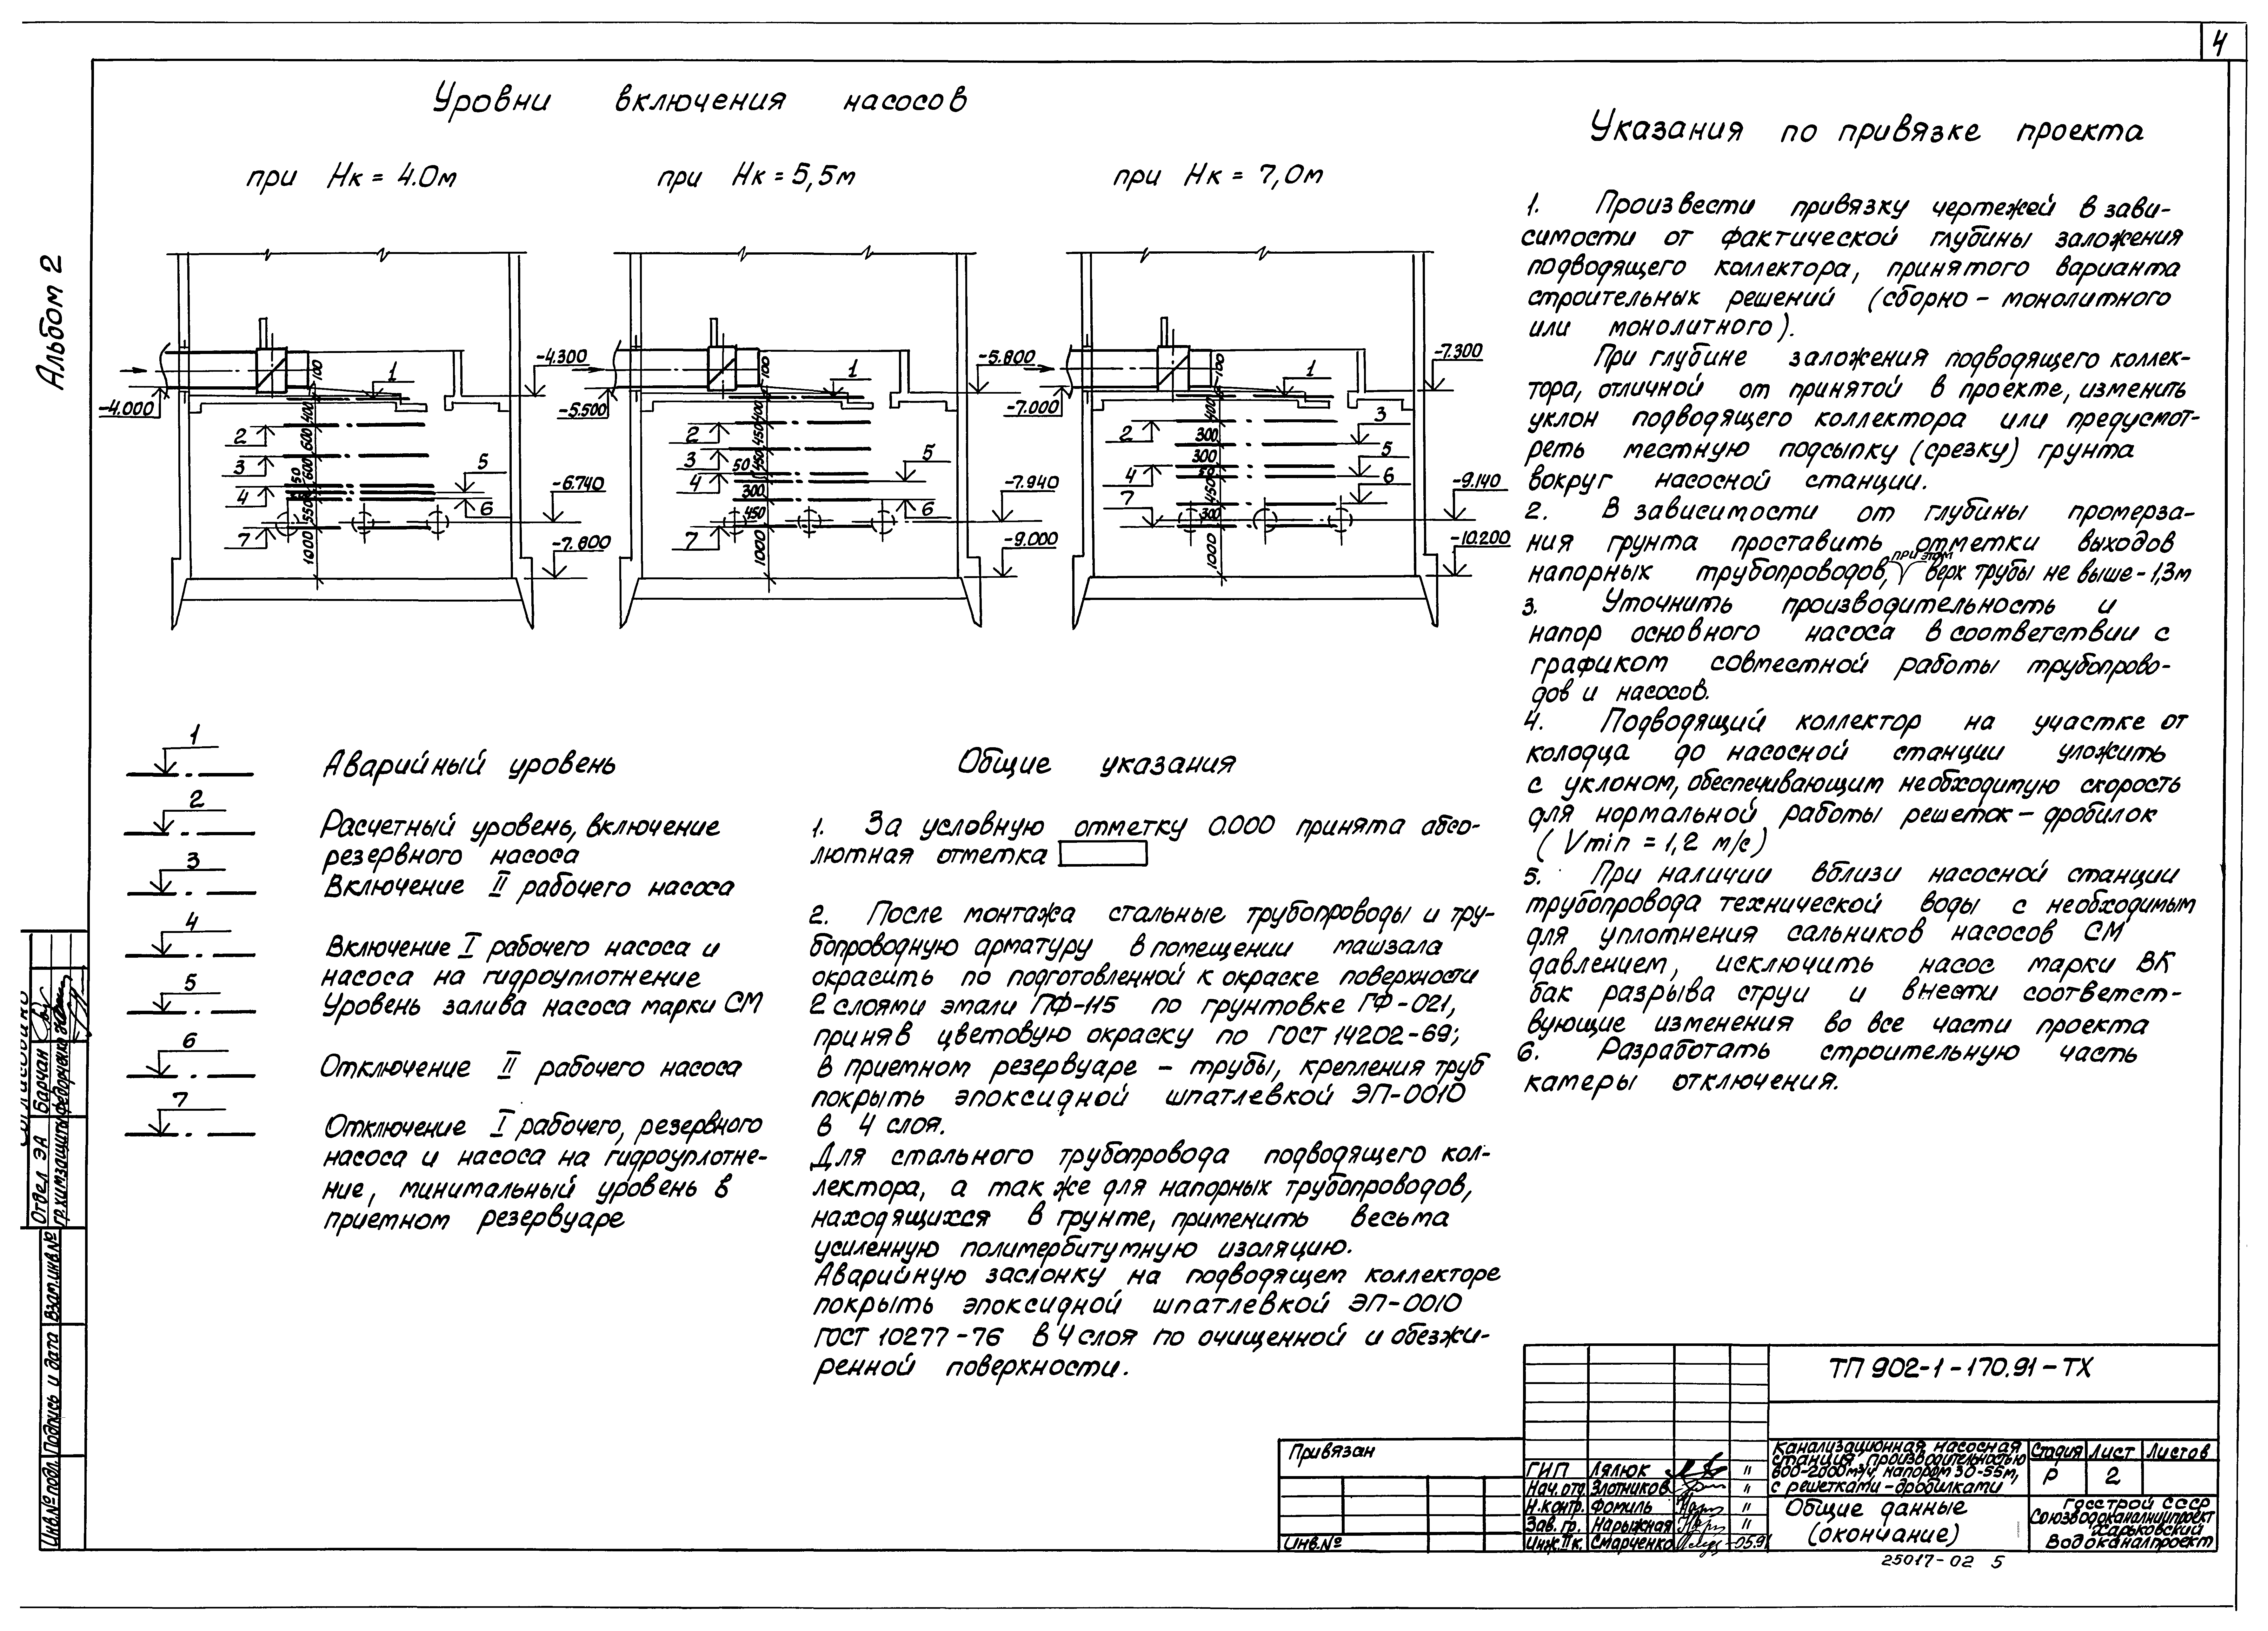 4
Альбом 2
Уровни включения насосов
при Нк = 4.0м
при Нк = 5,5м
при Нк = 7,0м
-4.000
-4.300
-6.740
-7.800
100
400
600
600
50
550
1000
1
2
3
4
5
6
7
-5.500
-5.800
-7.940
-9.000
100
400
450
450
50
300
450
1000
1
2
3
4
5
6
7
-7.000
-7.300
-9.140
-10.200
100
400
300
300
50
450
300
1000
1
2
3
4
5
6
7
1
Аварийный уровень
2
Расчетный уровень, включение
резервного насоса
3
Включение II рабочего насоса
4
Включение I рабочего насоса и
насоса на гидроуплотнение
5
Уровень залива насоса марки СМ
6
Отключение II рабочего насоса
7
Отключение I рабочего, резервного
насоса и насоса на гидроуплотне-
ние, минимальный уровень в
приемном резервуаре
Общие указания
1. За условную отметку 0.000 принята абсо-
лютная отметка
2. После монтажа стальные трубопроводы и тру-
бопроводную арматуру в помещении машзала
окрасить по подготовленной к окраске поверхности
2 слоями эмали ПФ-115 по грунтовке ГФ-021,
приняв цветовую окраску по ГОСТ 14202-69;
в приемном резервуаре - трубы, крепления труб
покрыть эпоксидной шпатлевкой ЭП-0010
в 4 слоя.
Для стального трубопровода подводящего кол-
лектора, а так же для напорных трубопроводов,
находящихся в грунте, применить весьма
усиленную полимербитумную изоляцию.
Аварийную заслонку на подводящем коллекторе
покрыть эпоксидной шпатлевкой ЭП-0010
ГОСТ 10277-76 в 4 слоя по очищенной и обезжи-
ренной поверхности.
Указания по привязке проекта
1. Произвести привязку чертежей в зави-
симости от фактической глубины заложения
подводящего коллектора, принятого варианта
строительных решений (сборно - монолитного
или монолитного).
При глубине заложения подводящего коллек-
тора, отличной от принятой в проекте, изменить
уклон подводящего коллектора или предусмот-
реть местную подсыпку (срезку) грунта
вокруг насосной станции.
2. В зависимости от глубины промерза-
ния грунта проставить отметки выходов
напорных трубопроводов, при этом верх трубы не выше - 1,3м
3. Уточнить производительность и
напор основного насоса в соответствии с
графиком совместной работы трубопрово-
дов и насосов.
4. Подводящий коллектор на участке от
колодца до насосной станции уложить
с уклоном, обеспечивающим необходимую скорость
для нормальной работы решеток - дробилок
( Vmin = 1,2 м/с)
5. При наличии вблизи насосной станции
трубопровода технической воды с необходимым
для уплотнения сальников насосов СМ
давлением, исключить насос марки ВК
бак разрыва струи и внести соответст-
вующие изменения во все части проекта
6. Разработать строительную часть
камеры отключения.
Отдел ЭА Барчан
гр.химзащиты Федорченко
Инв.№ подл. Подпись и дата Взам.инв.№
Привязан
Инв.№
ГИП Лялюк "
Нач. отд. Злотников "
Н.контр. Фомиль "
Зав. гр. Нарыжная "
Инж. II к. Смарченко 05.91
ТП 902-1-170.91-ТХ
Канализационная насосная
станция производительностью
800-2000м³/ч, напором 30-55м,
с решетками-дробилками
Стадия Лист Листов
Р 2
Общие данные
(окончание)
Госстрой СССР
Союзводоканалниипроект
Харьковский
Водоканалпроект
25017-02 5